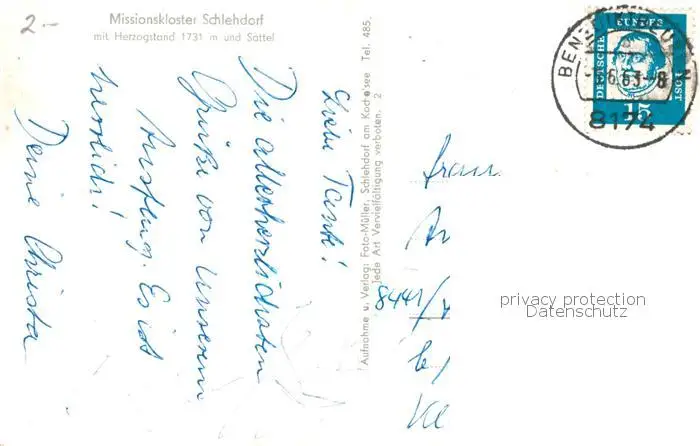 2.-
Missionskloster Schlehdorf
mit Herzogstand 1731 m und Sattel
Liebe Tante!
Die allerherzlichsten
Grüße von unserem
Ausflug. Es ist
herrlich!
Deine Christa
Aufnahme u. Verlag: Foto-Müller, Schlehdorf am Kochelsee Tel. 485
Jede Art Vervielfältigung verboten. 2
DEUTSCHE BUNDESPOST
15
63-8
8174
Frau
8441/
privacy protection
Datenschutz